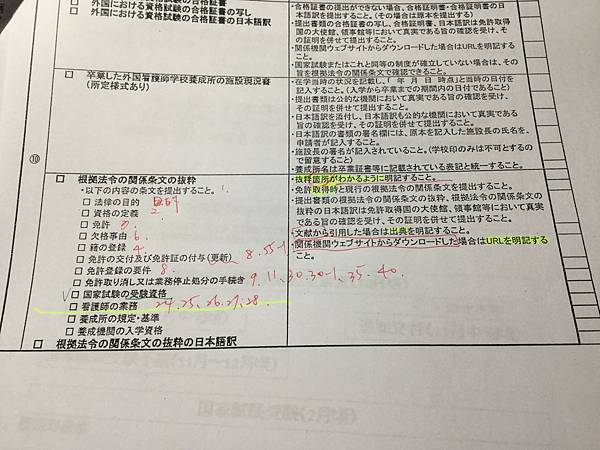 □ 外国における資格試験の合格証書の写し
□ 外国における資格試験の合格証書の日本語訳
・合格証書の提出ができない場合、合格証明書・合格証明書の日本語訳を提出すること。（その場合は原本を提出する）
・提出書類の合格証書の写し、合格証明書、日本語訳は免許取得国の大使館、領事館等において真実である旨の確認を受け、その証明を併せて提出すること。
・関係機関ウェブサイトからダウンロードした場合はURLを明記すること。
・国家試験またはこれと同等の制度が確立していない場合は、その旨を根拠法令の関係条文で確認できること。
⑩
□ 卒業した外国看護師学校養成所の施設現況書
（所定様式あり）
・在学当時の状況を記載し、「 年 月 日 時点」と当時の日付を記入すること。（入学から卒業までの期間内の日付であること）
・提出書類は公的な機関において真実である旨の確認を受け、その証明を併せて提出すること。
・日本語訳を添付し、日本語訳も公的な機関において真実である旨の確認を受け、その証明を併せて提出すること。
・日本語訳の書類の署名欄には、原本を記入した施設長の氏名を、申請者が記入すること。
・施設長の署名が記入されていること。（学校印のみは不可とするので留意すること）
・養成所名は卒業証書等に記載されている表記と統一すること。
□ 根拠法令の関係条文の抜粋
・以下の内容の条文を提出すること。 1.
□ 法律の目的
□ 資格の定義 2
□ 免許 3
□ 欠格事由 6.
□ 籍の登録 4.
□ 免許の交付及び免許証の付与（更新） 8.55-1
□ 免許登録の要件 8.
□ 免許取り消し又は業務停止処分の手続き 9.11.30.30-1.35.40.
✓□ 国家試験の受験資格
□ 看護師の業務 24.25.26.27.28.
□ 養成所の規定・基準
□ 養成機関の入学資格
・抜粋箇所がわかるように明記すること。
・免許取得時と現行の根拠法令の関係条文を提出すること。
・提出書類の根拠法令の関係条文の抜粋、根拠法令の関係条文の抜粋の日本語訳は免許取得国の大使館、領事館等において真実である旨の確認を受け、その証明を併せて提出すること。
・文献から引用した場合は出典を明記すること。
・関係機関ウェブサイトからダウンロードした場合はURLを明記すること。
□ 根拠法令の関係条文の抜粋の日本語訳